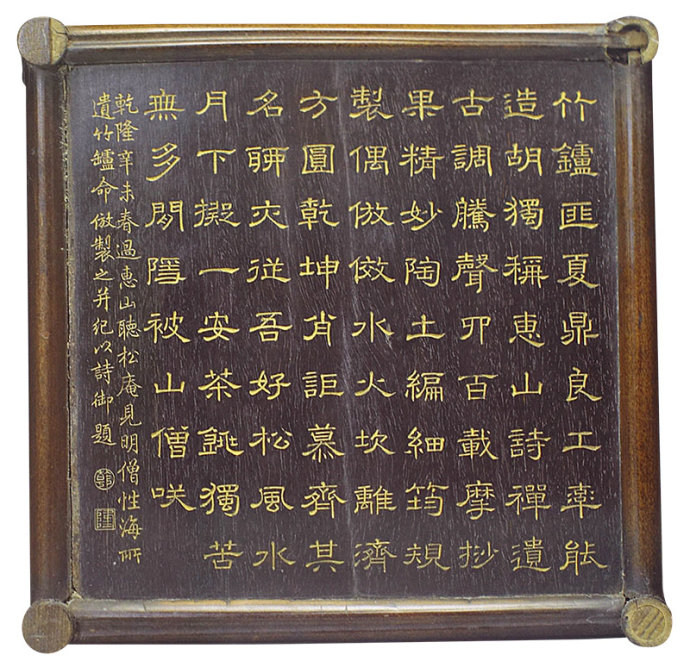 竹鑪匪夏鼎良工率能
造胡獨稱惠山詩禪遺
古調騰聲四百載摩挱
果精妙陶土編細筠規
製偶倣傚水火坎離濟
方圓乾坤肖詎慕齊其
名聊亦從吾好松風水
月下擬一安茶銚獨苦
無多閒隱被山僧咲
乾隆辛未春過惠山聽松庵見明僧性海所
遺竹鑪命倣製之并紀以詩御題
乾
隆